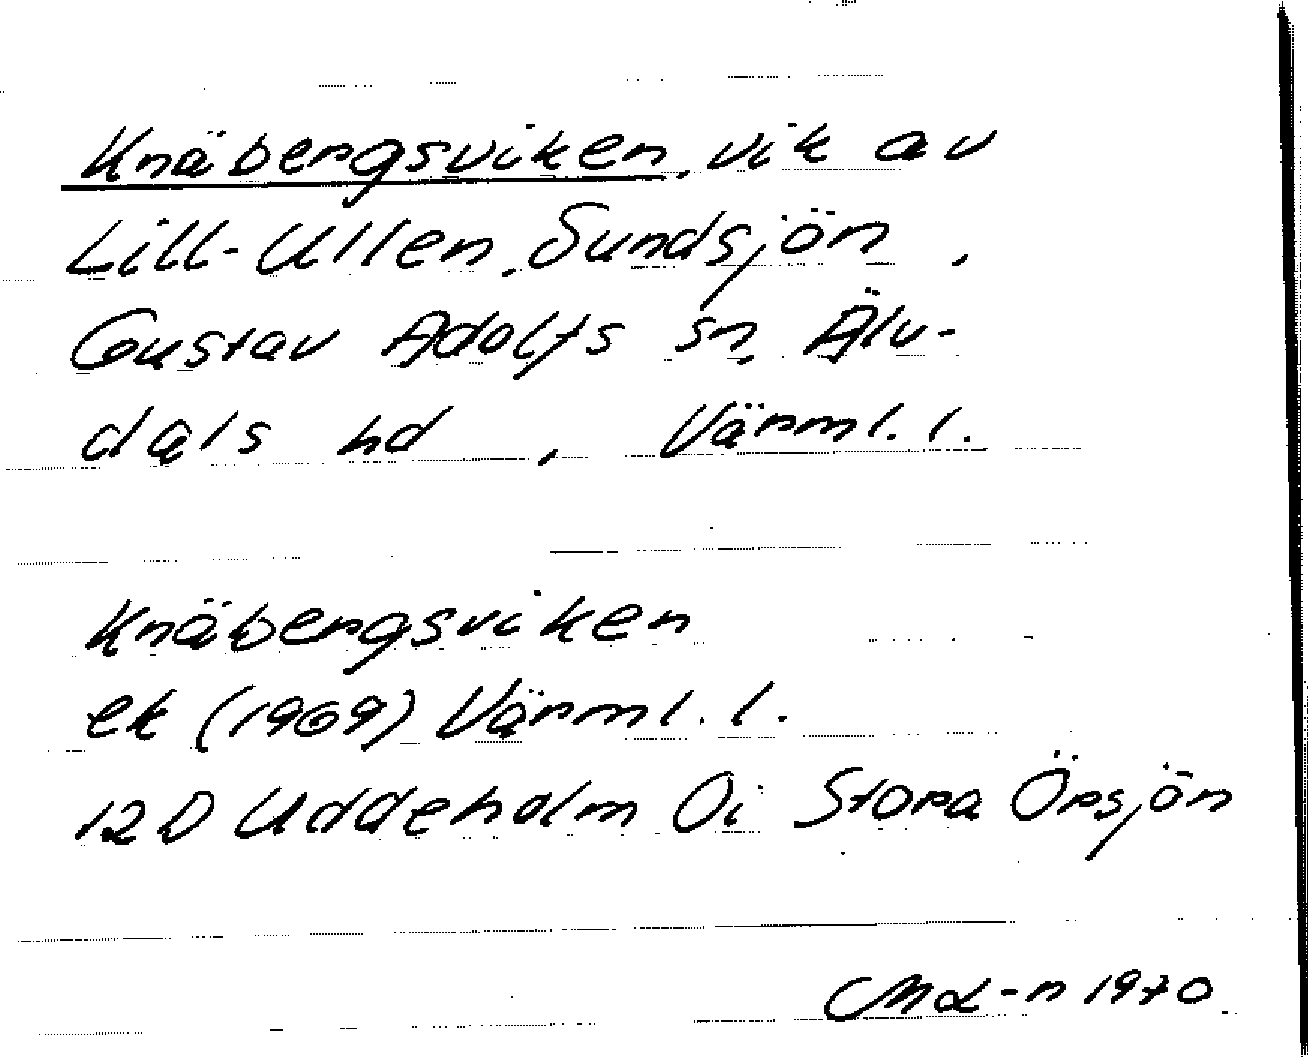 Knäbergsviken, vik av
Lill-Ullen, Sundsjön,
Gustav Adolfs sn, Älv-
dals hd, Värml. l.
Knäbergsviken
ek (1969) Värml. l.
12D Uddeholm 0i Stora Örsjön
1970